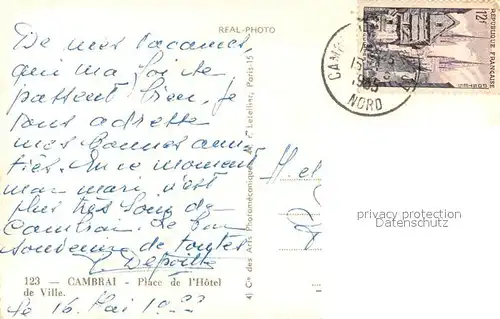 REAL-PHOTO
De mes vacances,
qui ma foi se
passent bien, je
vous adresse
mes bonnes ami-
tiés. En ce moment
mon mari n'est
plus très loin de
Cambrai. Le bon
souvenir de toutes
123 — CAMBRAI - Place de l'Hôtel
de Ville.
le 16 Mai 19
4) Cie des Arts Photomécaniques, 44, r. Letellier, Paris-15
M. et
CAMBRAI
NORD
12f
REPUBLIQUE FRANÇAISE
privacy protection
Datenschutz